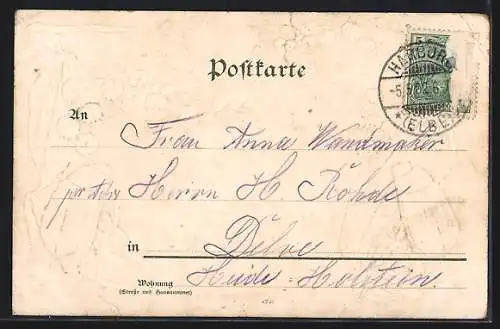 Postkarte
HAMBURG
(ELBE)
An
Frau Anna Wandmaker
per Adr Herrn H. Rohde
in Delve
Heide-Holstein.
Wohnung
(Straße und Hausnummer)